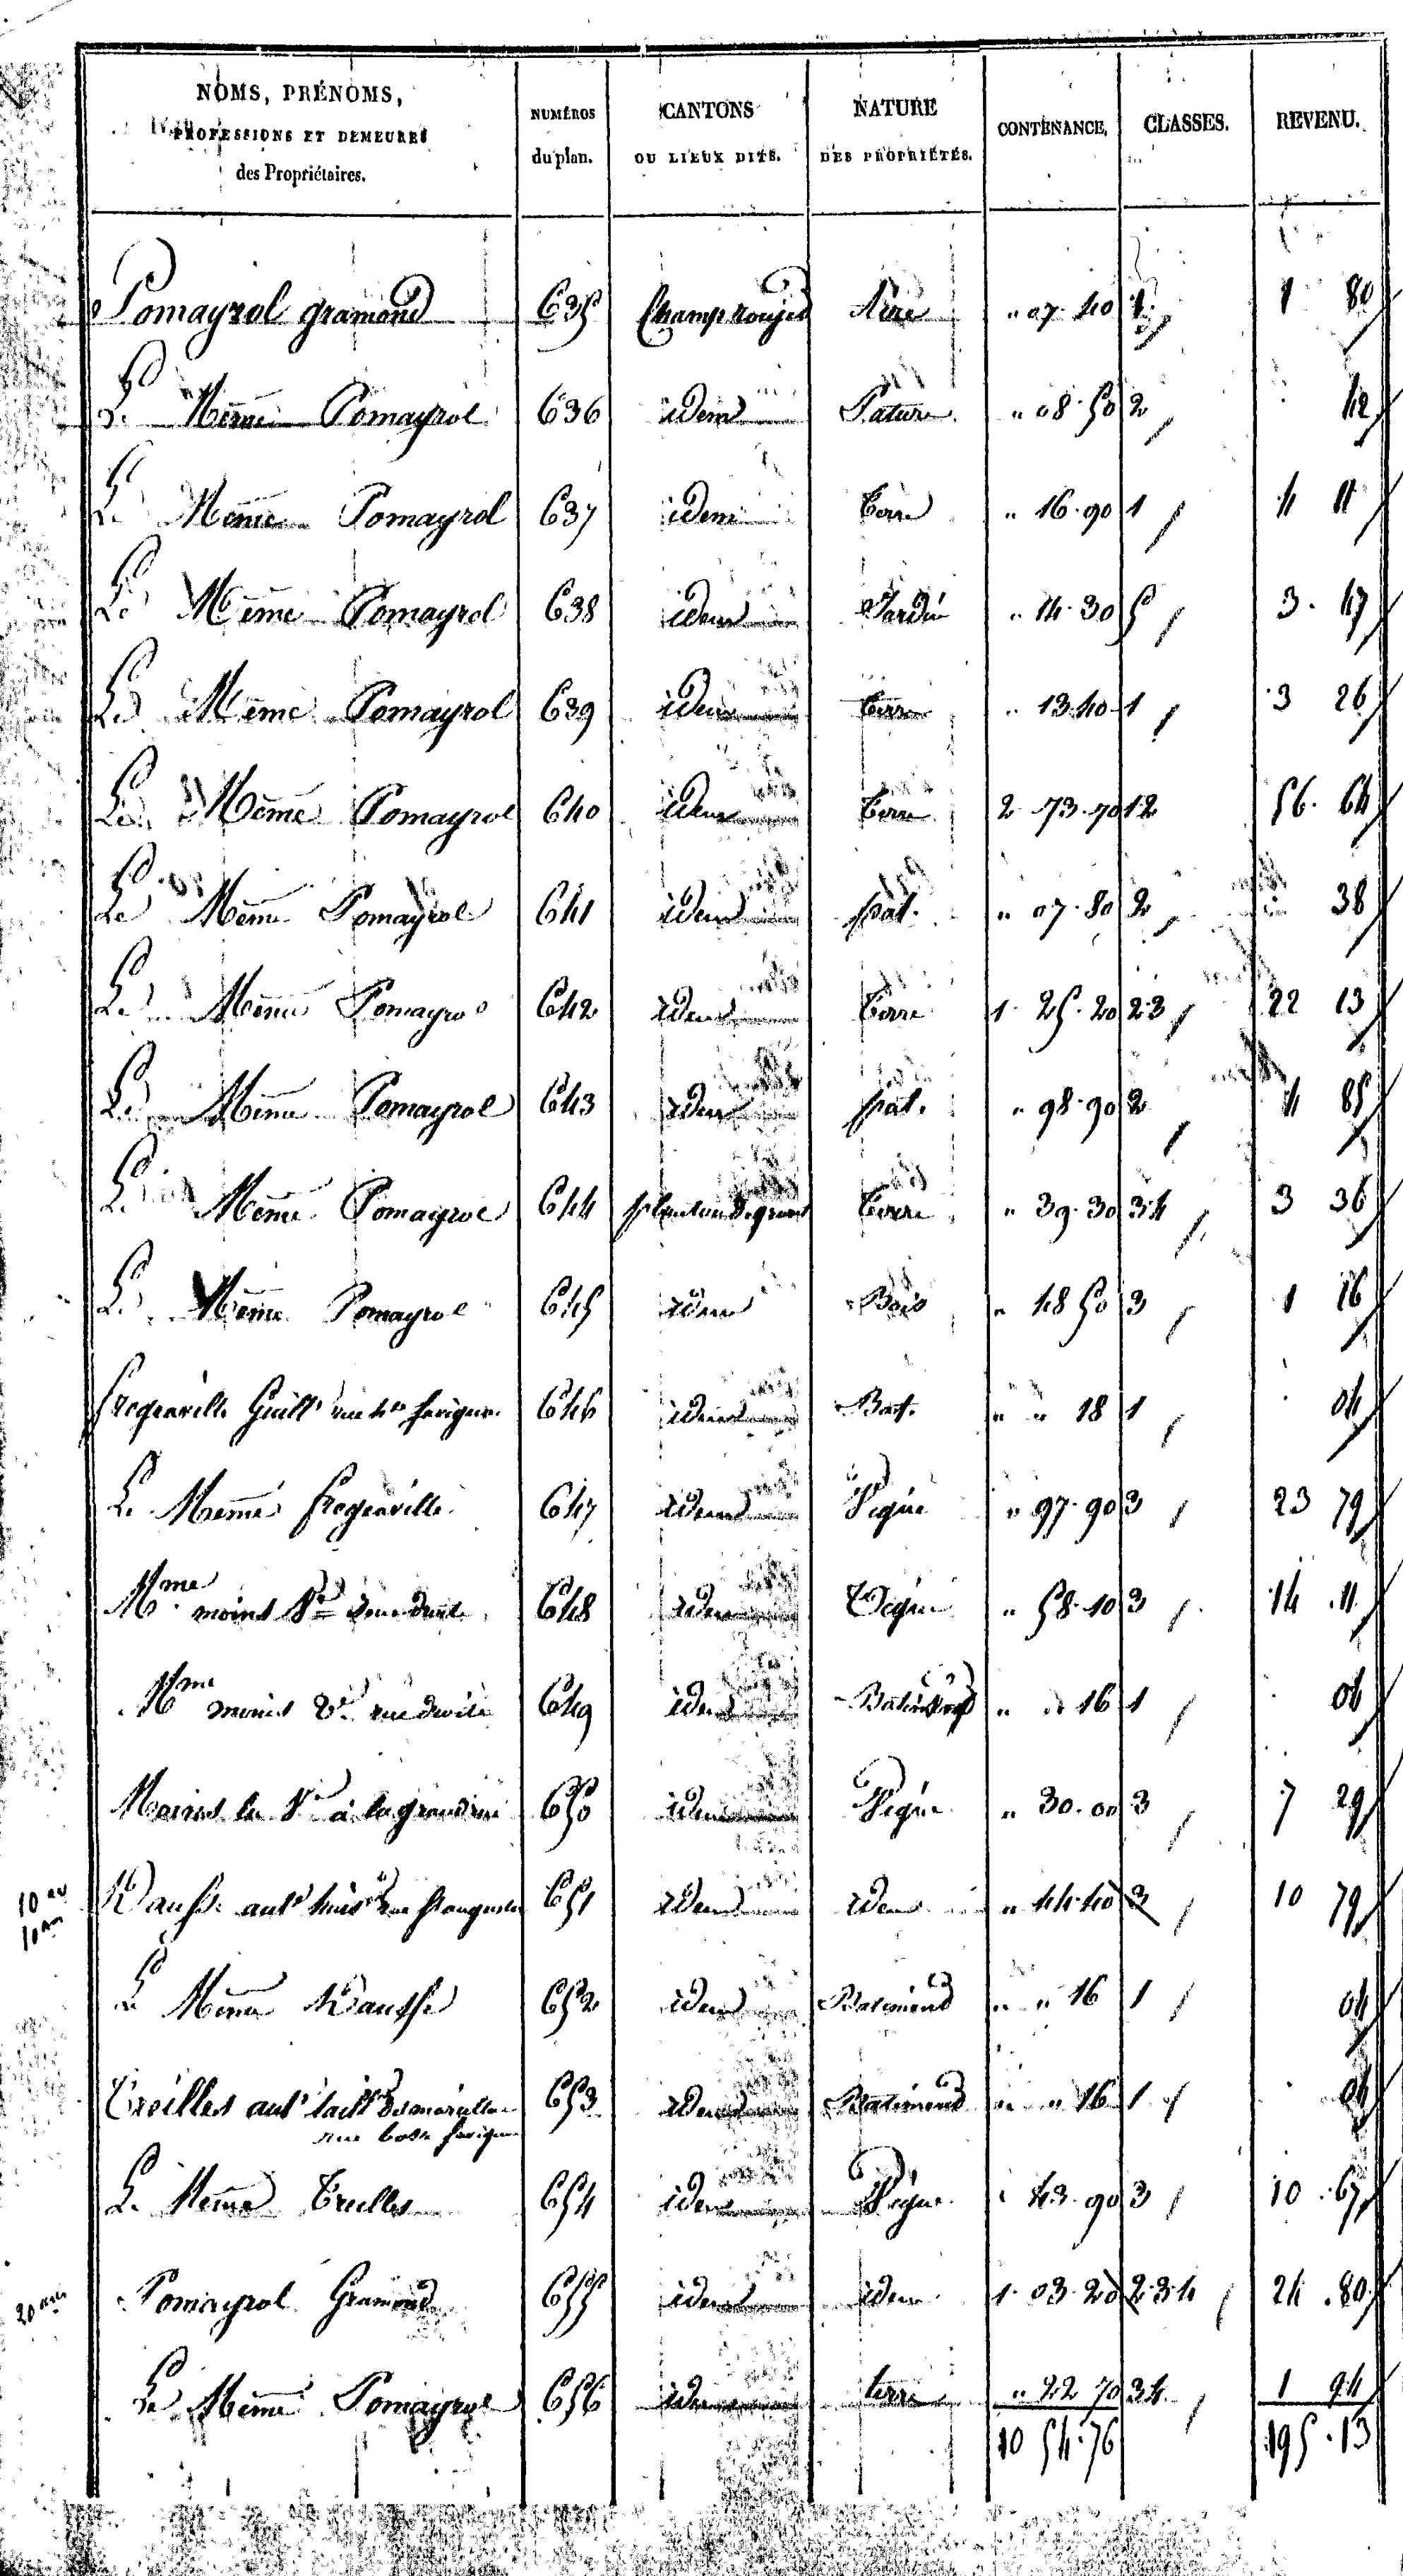 NOMS, PRÉNOMS, PROFESSIONS ET DEMEURES des Propriétaires. NUMÉROS du plan. CANTONS OU LIEUX DITS. NATURE DES PROPRIÉTÉS. CONTENANCE. CLASSES. REVENU.
Pomayrol gramond 635 Champ roujet " 07. 40 1. 1 80
Le Même Pomayrol 636 idem Pature " 08. 50 2 42
Le Même Pomayrol 637 idem terre " 16. 90 1 4 11
Le Même Pomayrol 638 idem Jardin " 14. 30 5 3. 47
Le Même Pomayrol 639 idem terre " 13. 40 1 3 26
Le Même Pomayrol 640 idem terre 2 73. 70 12 56. 64
Le Même Pomayrol 641 idem pat. " 07. 80 2 " 38
Le Même Pomayrol 642 idem terre 1. 25. 20 2 3 22 13
Le Même Pomayrol 643 idem pat. " 98. 90 2 4 85
Le Même Pomayrol 644 terre " 39. 30 3 4 3 36
Le Même Pomayrol 645 idem Bois " 48 50 3 1 16
fregeaville Guill 646 idem Bat. " " 18 1 04
Le Meme fregeaville 647 idem Vigne " 97. 90 3 23 79
Mme moins Ve 648 idem Vigne " 58. 10 3 14. 11
Mme moins Ve rue droite 649 idem " " 16 1 04
Moins la Ve à la grand rue 650 idem Vigne " 30. 00 3 7 29
10 au
10 am
651 idem idem " 44. 40 3 10 79
Le Meme 652 idem Batiment " " 16 1 04
Treilles 653 idem Batiment " " 16 1 04
rue basse
Le Meme Treilles 654 idem Vigne " 43. 90 3 10. 67
20 Pomayrol Gramond 655 idem idem 1. 03. 20 2. 3. 4 24. 80
Le Même Pomayrol 656 idem terre " 22 70 3 4. 1 94
10 54. 76 195. 13